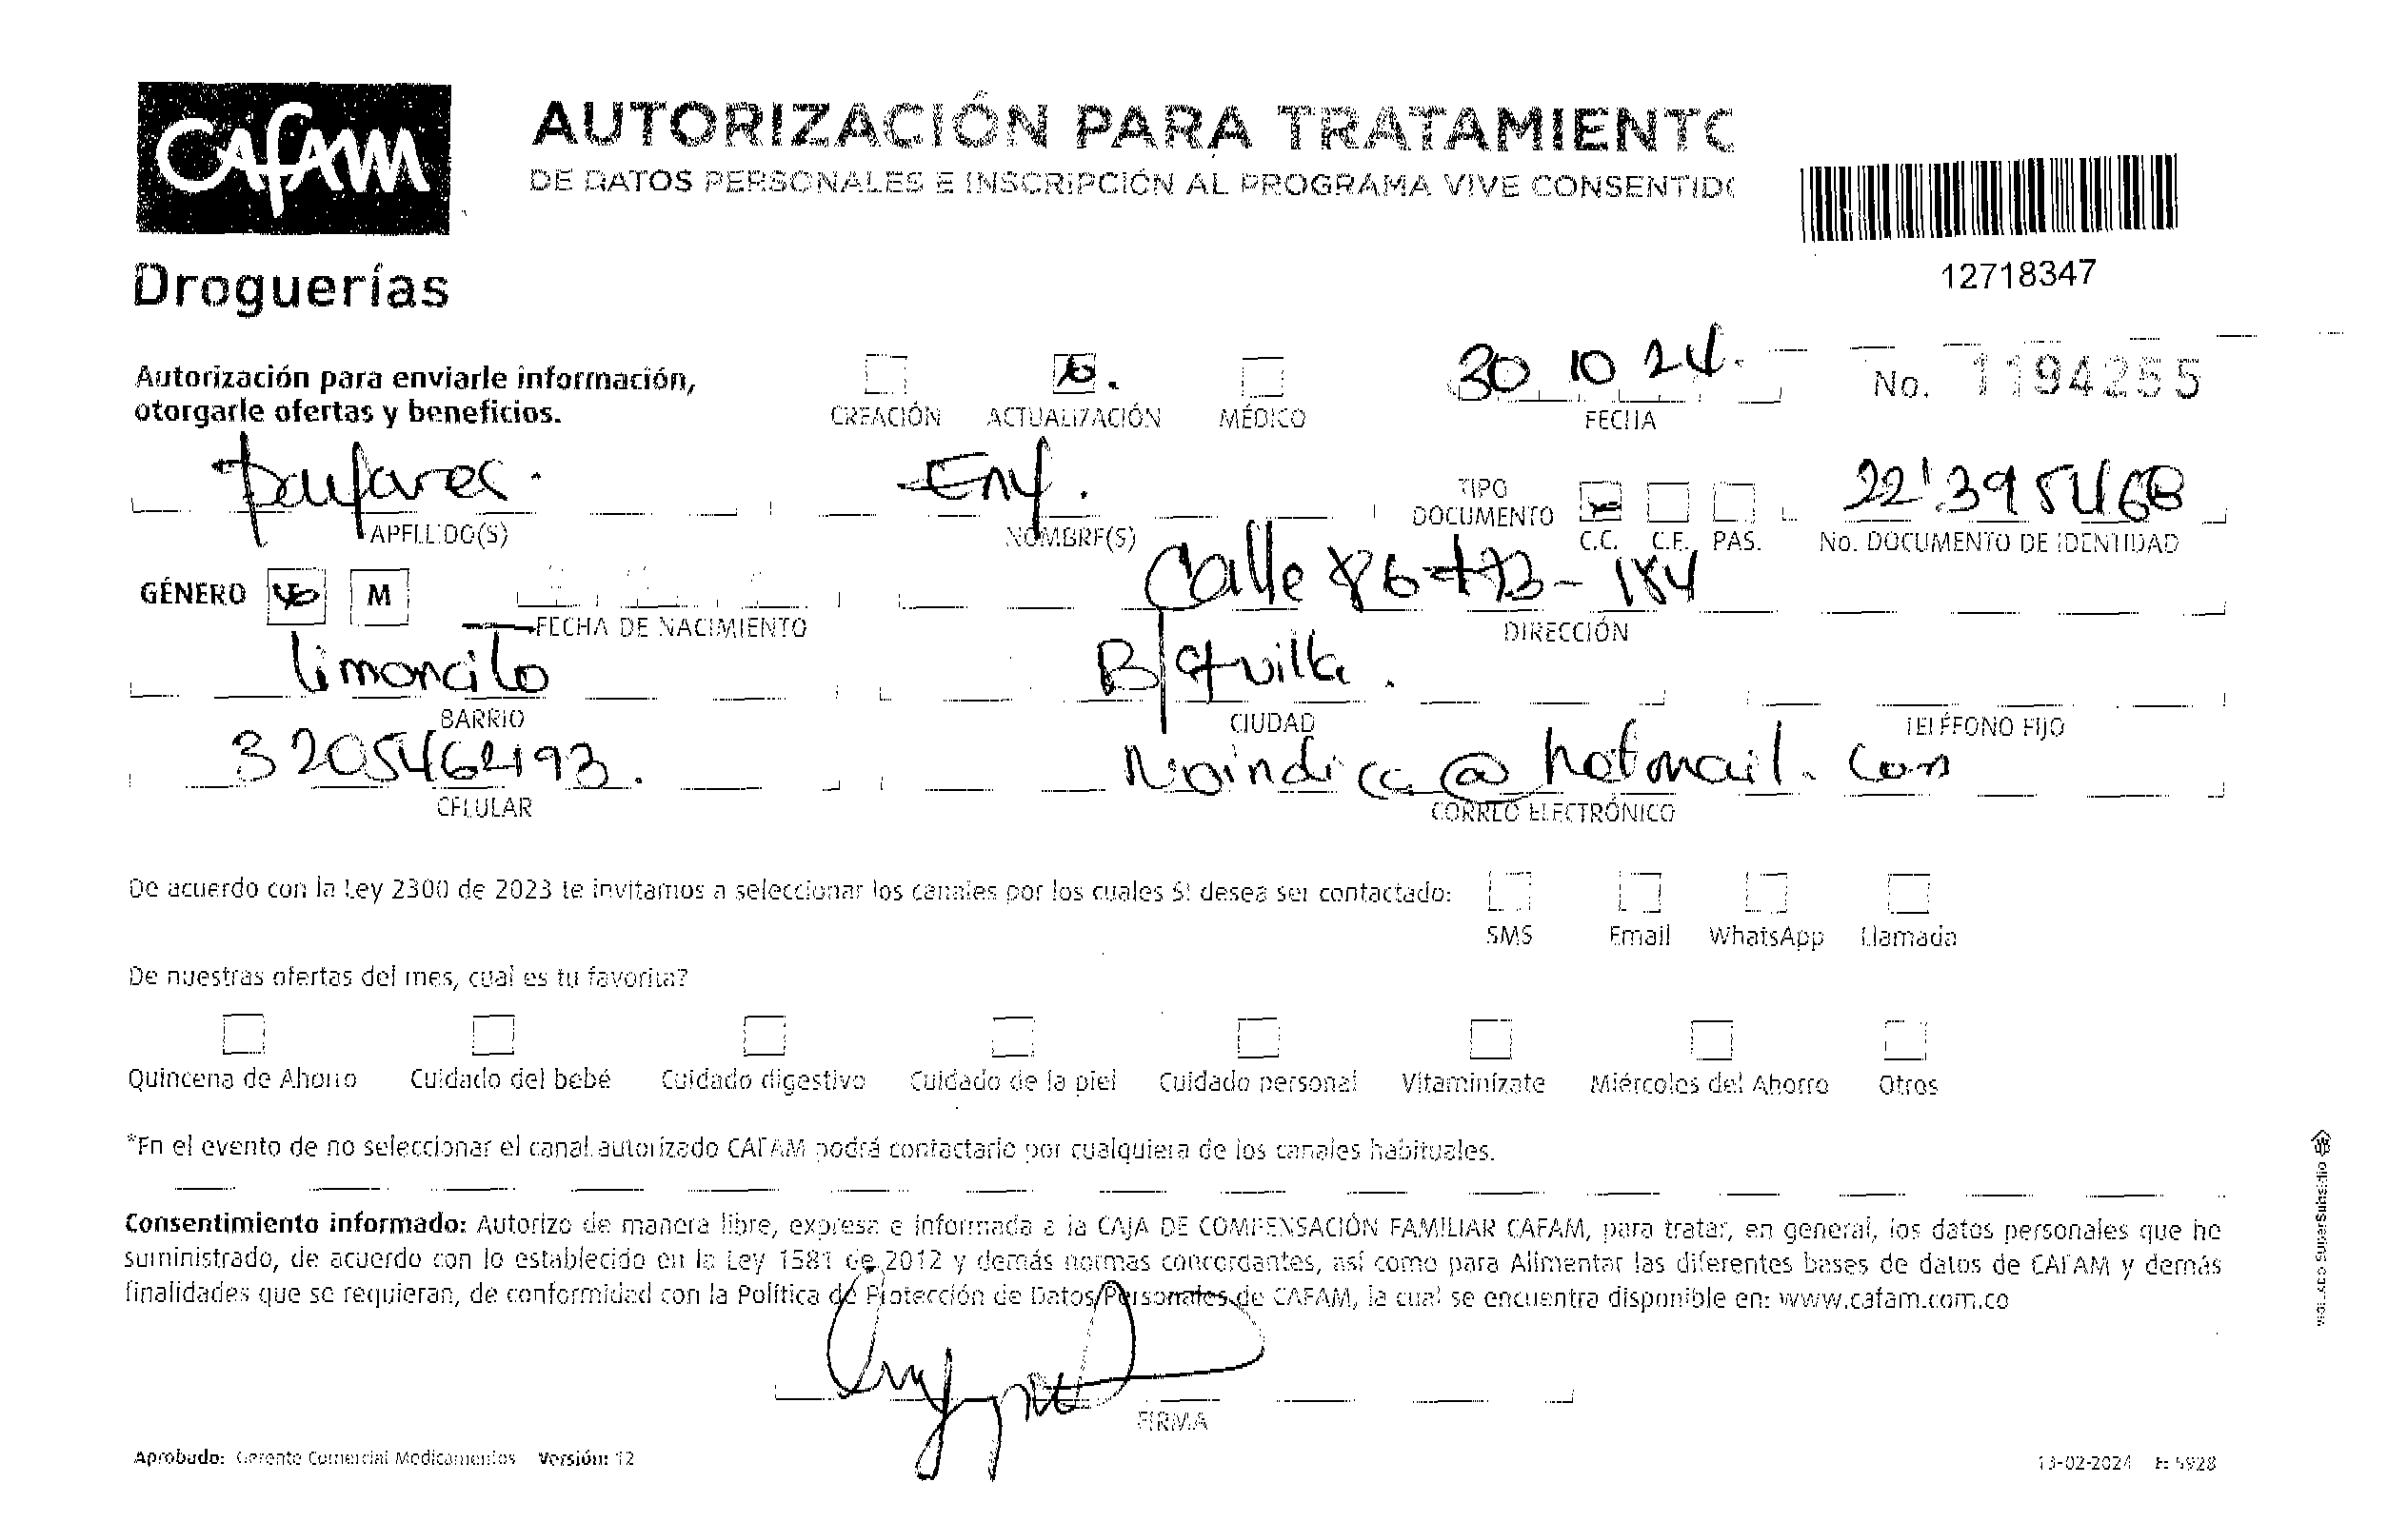 CAFAM
Droguerías
AUTORIZACIÓN PARA TRATAMIENTO
DE DATOS PERSONALES E INSCRIPCIÓN AL PROGRAMA VIVE CONSENTIDO
12718347
Autorización para enviarle información,
otorgarle ofertas y beneficios.
CREACIÓN ACTUALIZACIÓN MÉDICO
30 10 24.
FECHA
No. 1194255
Eny.
APELLIDO(S) NOMBRE(S)
TIPO DOCUMENTO C.C. C.E. PAS.
22'395468
No. DOCUMENTO DE IDENTIDAD
GÉNERO M
FECHA DE NACIMIENTO
Calle 86 # 73 - 184
DIRECCIÓN
limoncito
BARRIO
B/quilla.
CIUDAD
TELÉFONO FIJO
CELULAR
Noindica@hotmail.com
CORREO ELECTRÓNICO
De acuerdo con la Ley 2300 de 2023 te invitamos a seleccionar los canales por los cuales SI desea ser contactado:
SMS Email WhatsApp Llamada
De nuestras ofertas del mes, cual es tu favorita?
Quincena de Ahorro Cuidado del bebé Cuidado digestivo Cuidado de la piel Cuidado personal Vitaminízate Miércoles del Ahorro Otros
*En el evento de no seleccionar el canal autorizado CAFAM podrá contactarlo por cualquiera de los canales habituales.
Consentimiento informado: Autorizo de manera libre, expresa e informada a la CAJA DE COMPENSACIÓN FAMILIAR CAFAM, para tratar, en general, los datos personales que he
suministrado, de acuerdo con lo establecido en la Ley 1581 de 2012 y demás normas concordantes, así como para Alimentar las diferentes bases de datos de CAFAM y demás
finalidades que se requieran, de conformidad con la Política de Protección de Datos Personales de CAFAM, la cual se encuentra disponible en: www.cafam.com.co
FIRMA
Aprobado: Gerente Comercial Medicamentos Versión: 12
13-02-2024 F: 5928
VIGILADO SuperSubsidio